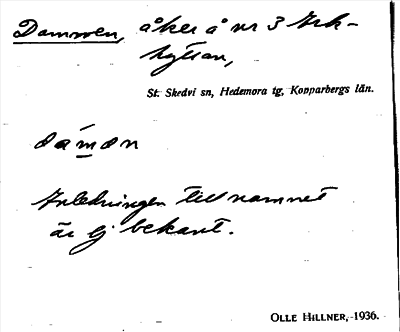 Dammen, åker å nr 3 Erk-
hyttan,
St. Skedvi sn, Hedemora tg, Kopparbergs län.
dámən
Anledningen till namnet
är ej bekant.
OLLE HILLNER, 1936.